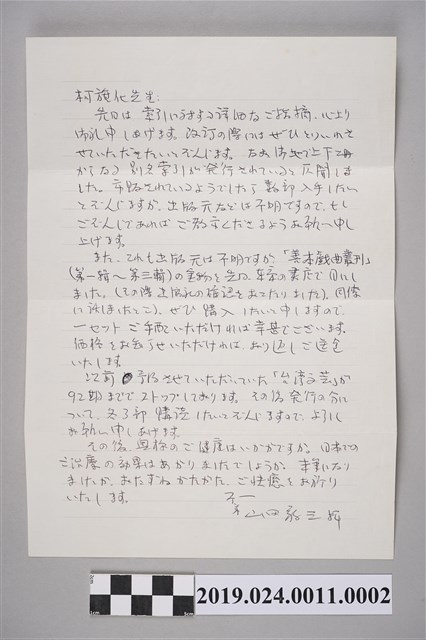 柯旗化先生:
先日は索引に対する詳細なご指摘、心より
御礼申しあげます。改訂の際にはぜひとりいれさ
せていただきたいとぞんじます。なお御地で上下二冊
からなる別名索引が発行されていると仄聞しま
した。市販されているようでしたら数部入手したい
とぞんじますが、出版元などは不明ですので、もし
ごぞんじであればご教示くださるようお願い申し
上げます。
また、これも出版元は不明ですが「善本戯曲叢刊」
(第一輯~第三輯)の実物を先日、東京の書店で目にし
ました。(その際出版社の確認をおこたりました)。関係
ぜひ購入したいと申しますので、
一セットご手配いただければ幸甚でございます。
価格をお知らせいただければ、折り返しご送金
いたします。
以前 予約させていただいていた「台湾文芸」が
92期まででストップしております。その後発行の分に
ついて、各3部購読したいとぞんじますので、よろしく
お願い申しあげます。
その後、奥様のご健康はいかがですか。日本での
ご治療の効果はあがりましたでしょうか。末筆になり
ましたが、おたずねかたがた、ご快癒をお祈り
いたします。
不一
山田敬三拝
2019.024.0011.0002